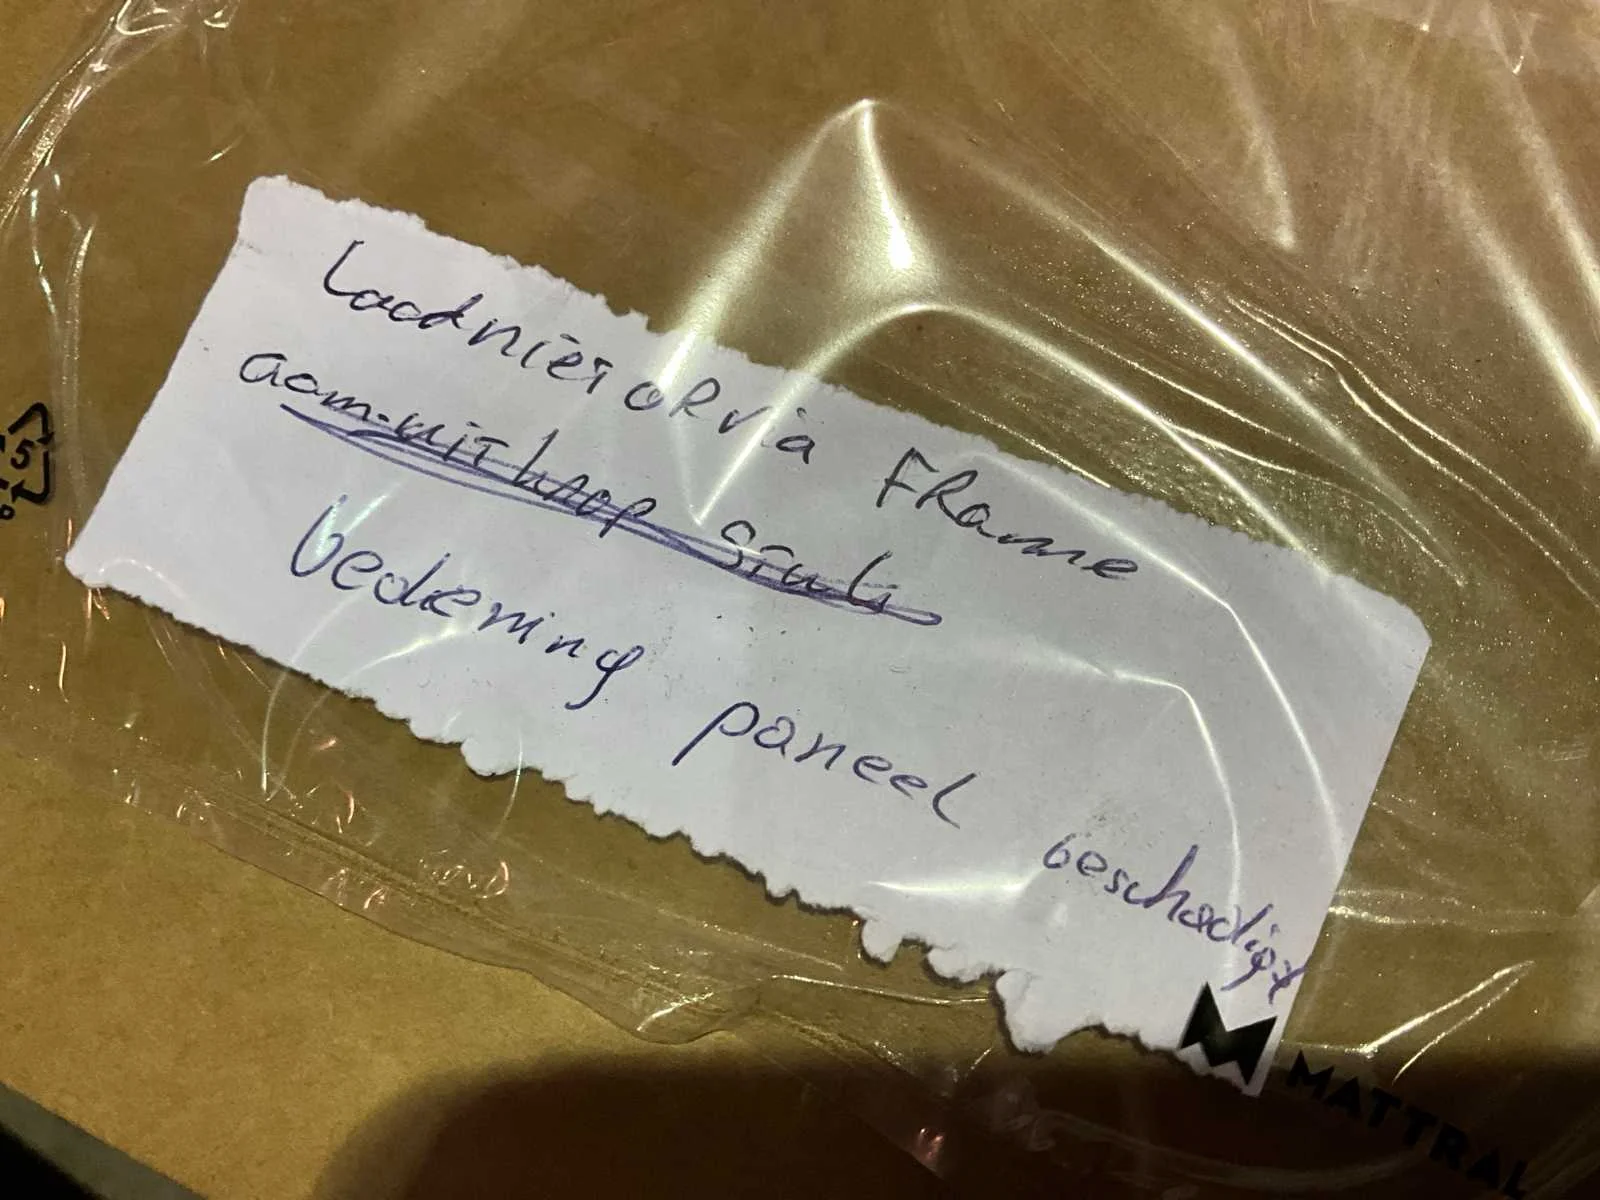 Laad niet op via Frame
aan-uit knop stuk
bediening paneel beschadigt
MATTRAL
5